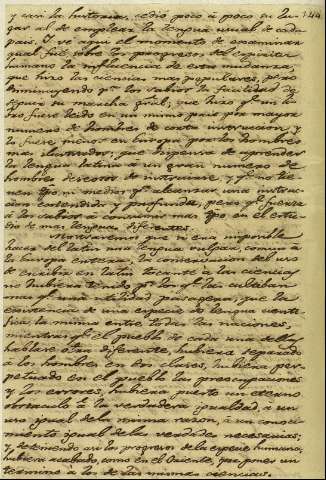 y en la historia, cedió poco á poco su lu-
gar al de emplear la lengua usual de cada
pais. Y ve aqui el momento de examinar
qual fué sobre los progresos del espiritu
humano la influencia de esta mudanza,
que hizo las ciencias mas populares, pero
disminuyendo pª los sabios la facilidad de
seguir su marcha gral; que hizo qe un li-
bro fuese leido en un mismo pais por mayor
numero de hombres de corta instruccion, y
lo fuese menos en Europa por los hombres
mas ilustrados; que dispensa de aprender
la lengua latina á un gran numero de
hombres deseosos de instruirse, y qe no tie-
nen tpo ni medios pª alcanzar una instruc-
cion extendida y profunda; pero qe fuerza
á los sabios á consumir mas tpo en el estu-
dio de mas lenguas diferentes.
Mostraremos que si era imposible
hacer del latin una lengua vulgar, comun á
la Europa entera, la conservacion del uso
de escribir en latin tocante á las ciencias
no hubiera tenido pª los qe las cultivan
mas qe una utilidad pasagera; que la
existencia de una especie de lengua cienti-
fica, la misma entre todas las naciones,
mientras qe el pueblo de cada una de ellas
hablase otra diferente, hubiera separado
á los hombres en dos clases, hubiera per-
petuado en el pueblo las preocupaciones
y los errores, hubiera puesto un eterno
obstaculo á la verdadera igualdad, á un
uso igual de la misma razon, á un conoci-
miento igual de las verdades necesarias;
y, deteniendo asi los progresos de la especie humana,
hubiera acabado, como en el Oriente, por poner un
termino á los de las mismas ciencias.